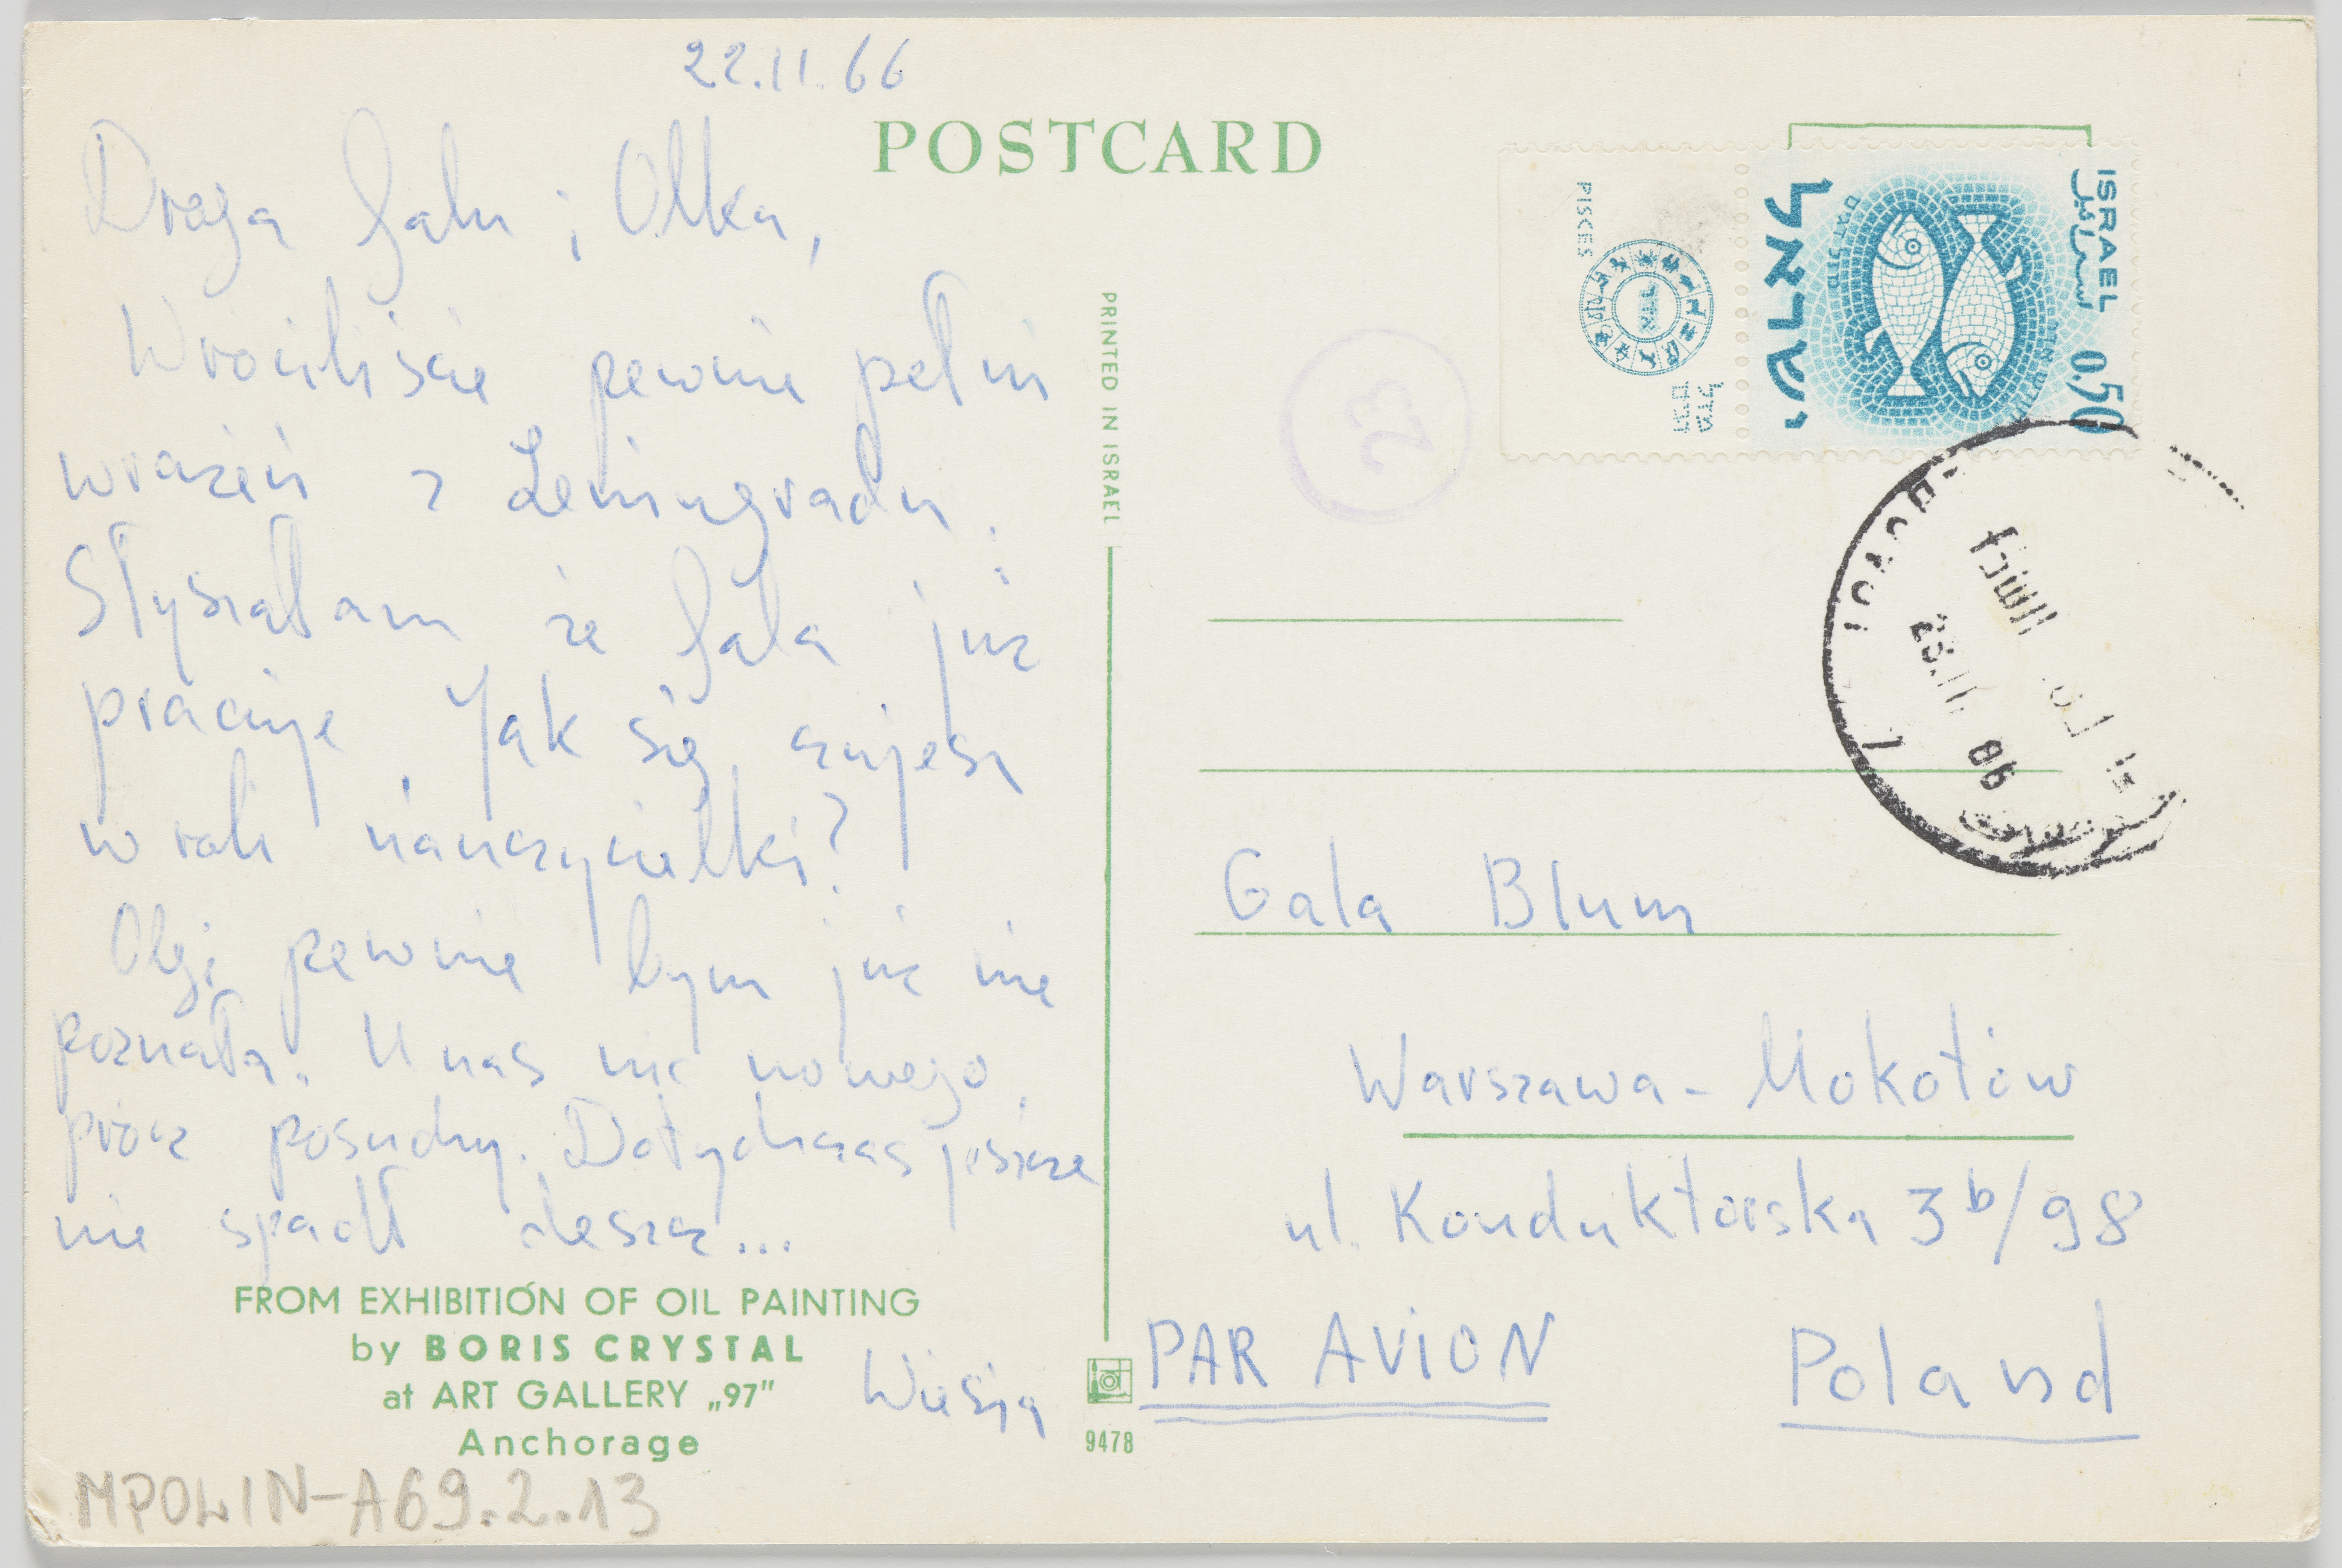 22.11.66
POSTCARD
Droga Galu i Olka,
Wróciliście pewnie pełni
wrażeń z Leningradu.
Słyszałam że Gala już
pracuje. Jak się czujesz
w roli nauczycielki?
Olgi pewnie bym już nie
poznała. U nas nic nowego,
prócz posuchy. Dotychczas jeszcze
nie spadł deszcz...
Wiesia
FROM EXHIBITION OF OIL PAINTING
by BORIS CRYSTAL
at ART GALLERY „97”
Anchorage
MPOLIN-A69.2.13
PRINTED IN ISRAEL
9478
23
PISCES
מזל
דגים
אדר
ישראל
ISRAEL
اسرائيل
0.50
Gala Blum
Warszawa - Mokotów
ul. Konduktorska 3b/98
PAR AVION
Poland